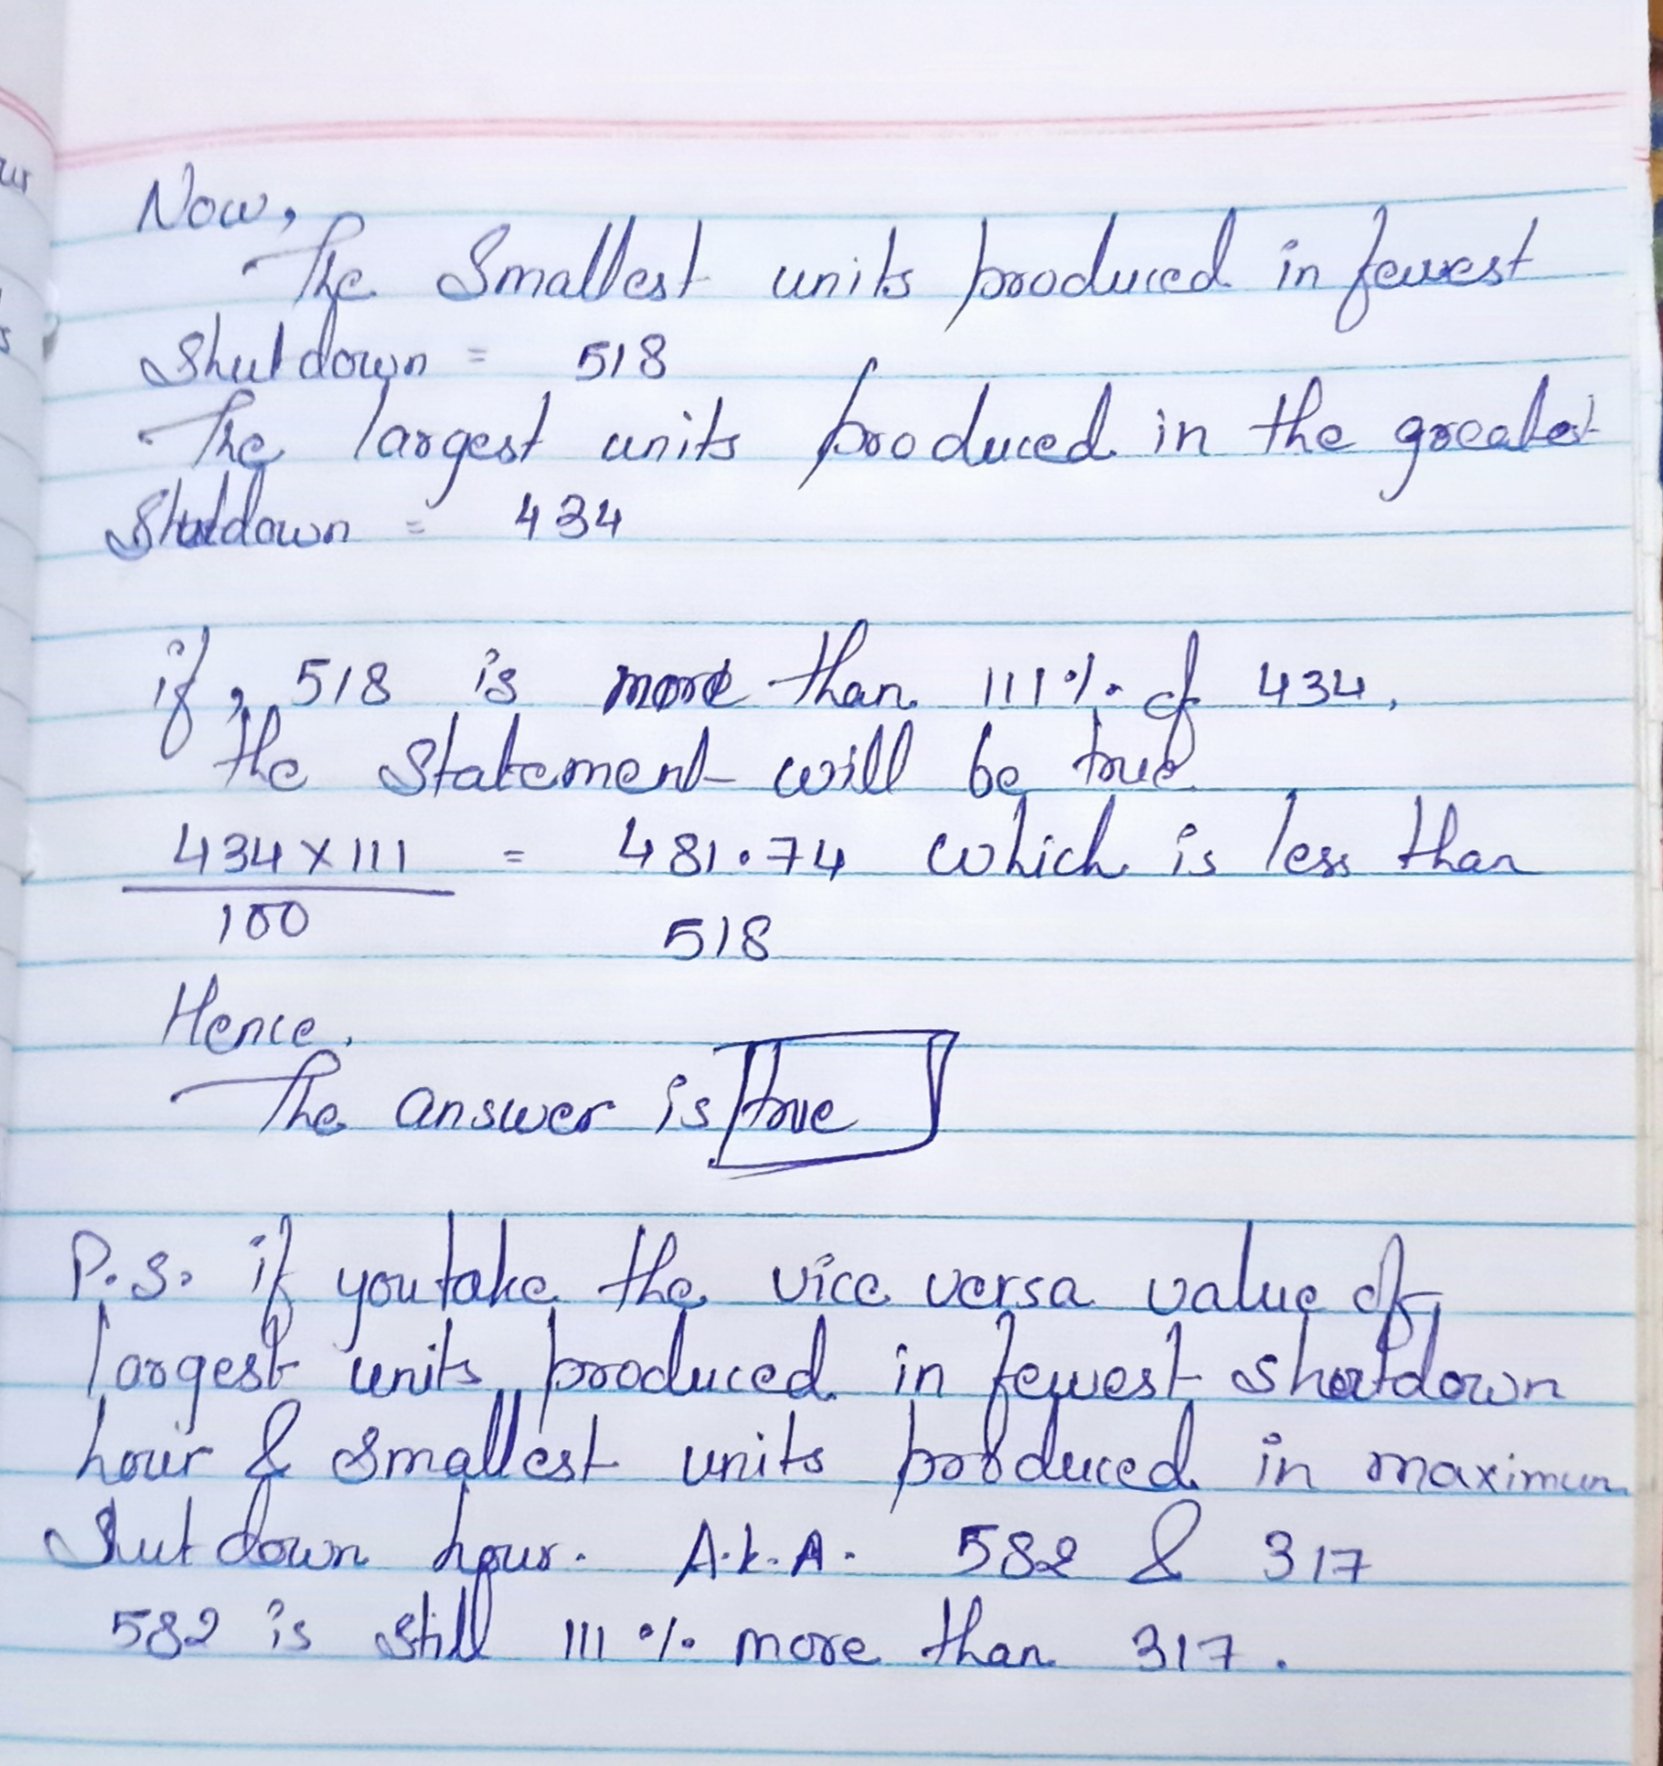 Now,
The Smallest units produced in fewest
Shutdown = 518
The largest units produced in the greatest
Shutdown = 434
if, 518 is more than 111% of 434,
the statement will be true
434 x 111 = 481.74 which is less than
100 518
Hence,
The answer is true
P.S. if you take the vice versa value of
largest units produced in fewest shutdown
hour & smallest units produced in maximum
Shutdown hour. A.k.A. 582 & 317
582 is still 111% more than 317.